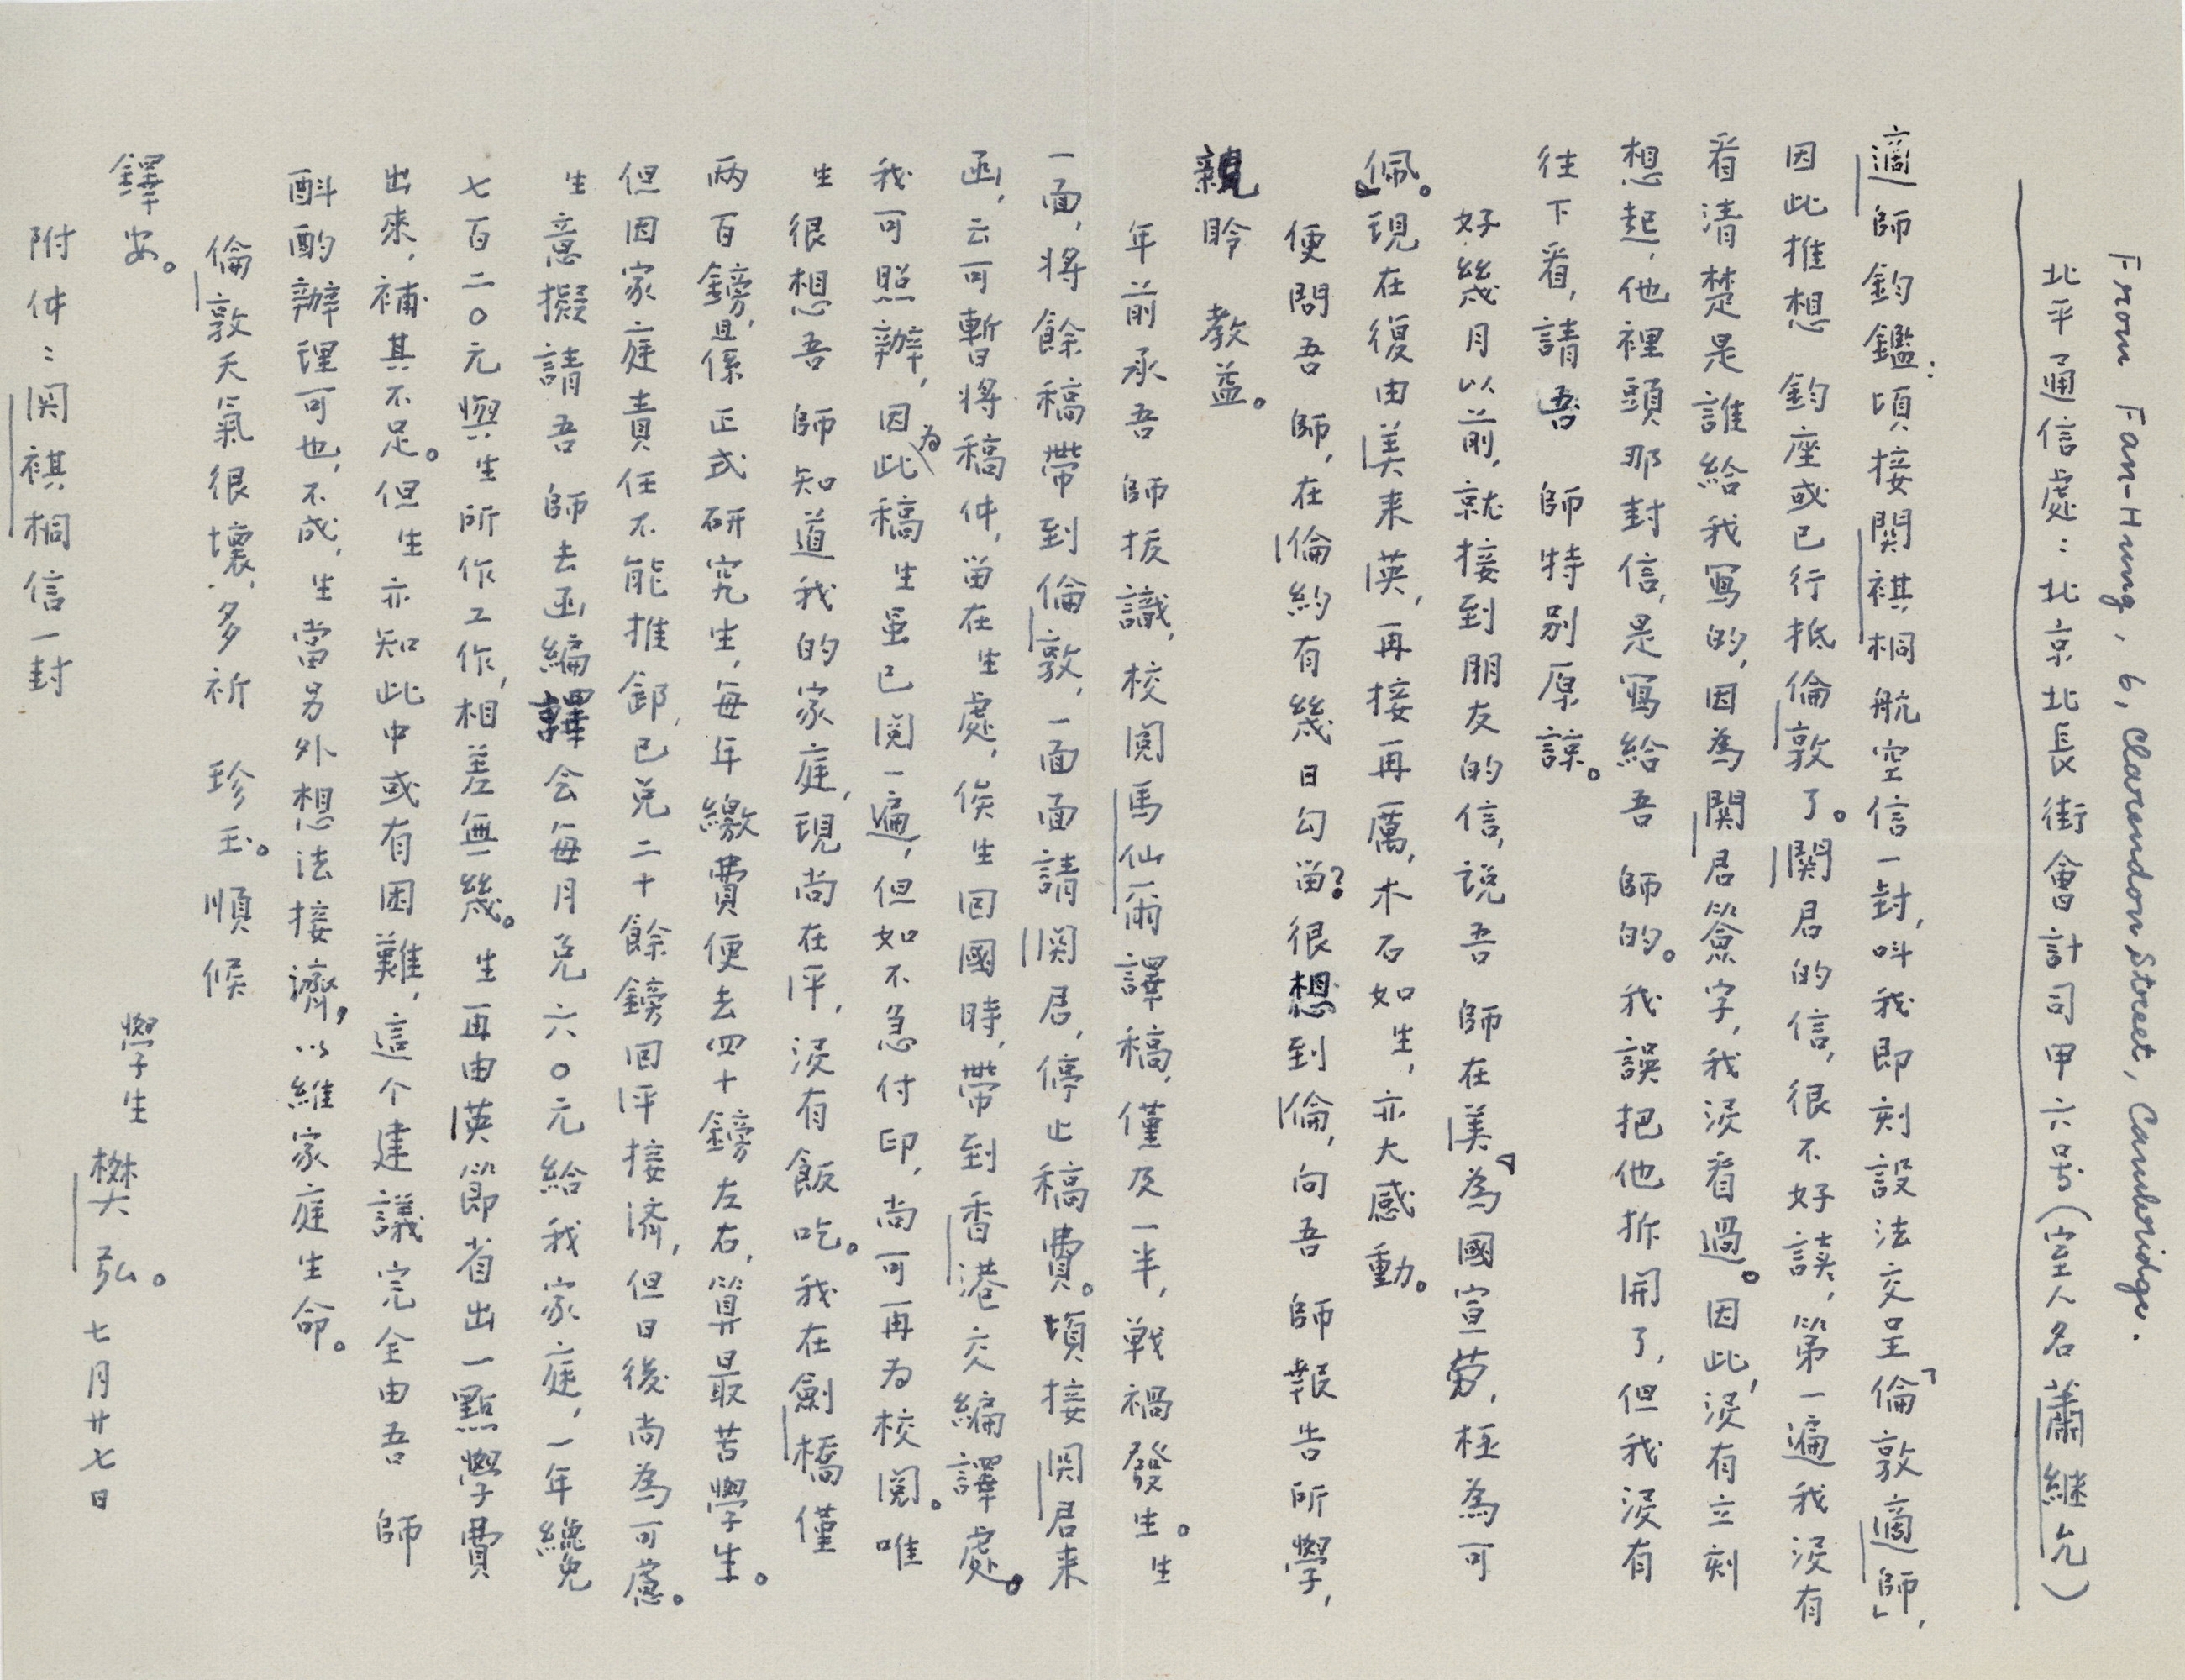 From Fan-Hung, 6, Clarendon Street, Cambridge.
北平通信處：北京北長街會計司甲六号（室人名蕭継允）
適師鈞鑑：頃接関祺桐航空信一封，叫我即刻設法交呈「倫敦適師」，
因此推想　鈞座或已行抵倫敦了。関君的信，很不好讀，第一遍我沒有
看清楚是誰給我寫的，因為関君簽字，我沒看過。因此，沒有立刻
想起，他裡頭那封信，是寫給吾　師的。我誤把他拆開了，但我沒有
往下看，請吾　師特別原諒。
好幾月以前，就接到朋友的信，説吾　師在美「為國宣劳，極為可
佩」。現在復由美来英，再接再厲，木石如生，亦大感動。
便問吾　師，在倫約有幾日勾畄？很想到倫，向吾　師報告所學，
親聆　教益。
年前承吾　師拔識，校閱馬仙爾譯稿，僅及一半，戦禍發生。生
一面，将餘稿帶到倫敦，一面面請関君，停止稿費。頃接関君来
函，云可暫将稿件，畄在生處，俟生回國時，帶到香港交編譯處。
我可照辦，因為此稿生虽已閱一遍，但如不急付印，尚可再为校閱。唯
生很想吾　師知道我的家庭，現尚在平，沒有飯吃。我在劍橋僅
两百鎊，且係正式研究生，每年繳費便去四十鎊左右，算最苦學生。
但因家庭責任不能推卸，已兑二十餘鎊回平接済，但日後尚為可慮。
生意擬請吾　師去函編譯会每月兑六〇元給我家庭，一年總兑
七百二〇元與生所作工作，相差無幾。生再由英節省出一點學費
出來，補其不足。但生亦知此中或有困難，這个建議完全由吾　師
斟酌辦理可也，不成，生當另外想法接濟，以維家庭生命。
倫敦天氣很壞，多祈　珍玉。順候
鐸安。
學生　樊弘。七月廿七日
附件：関祺桐信一封